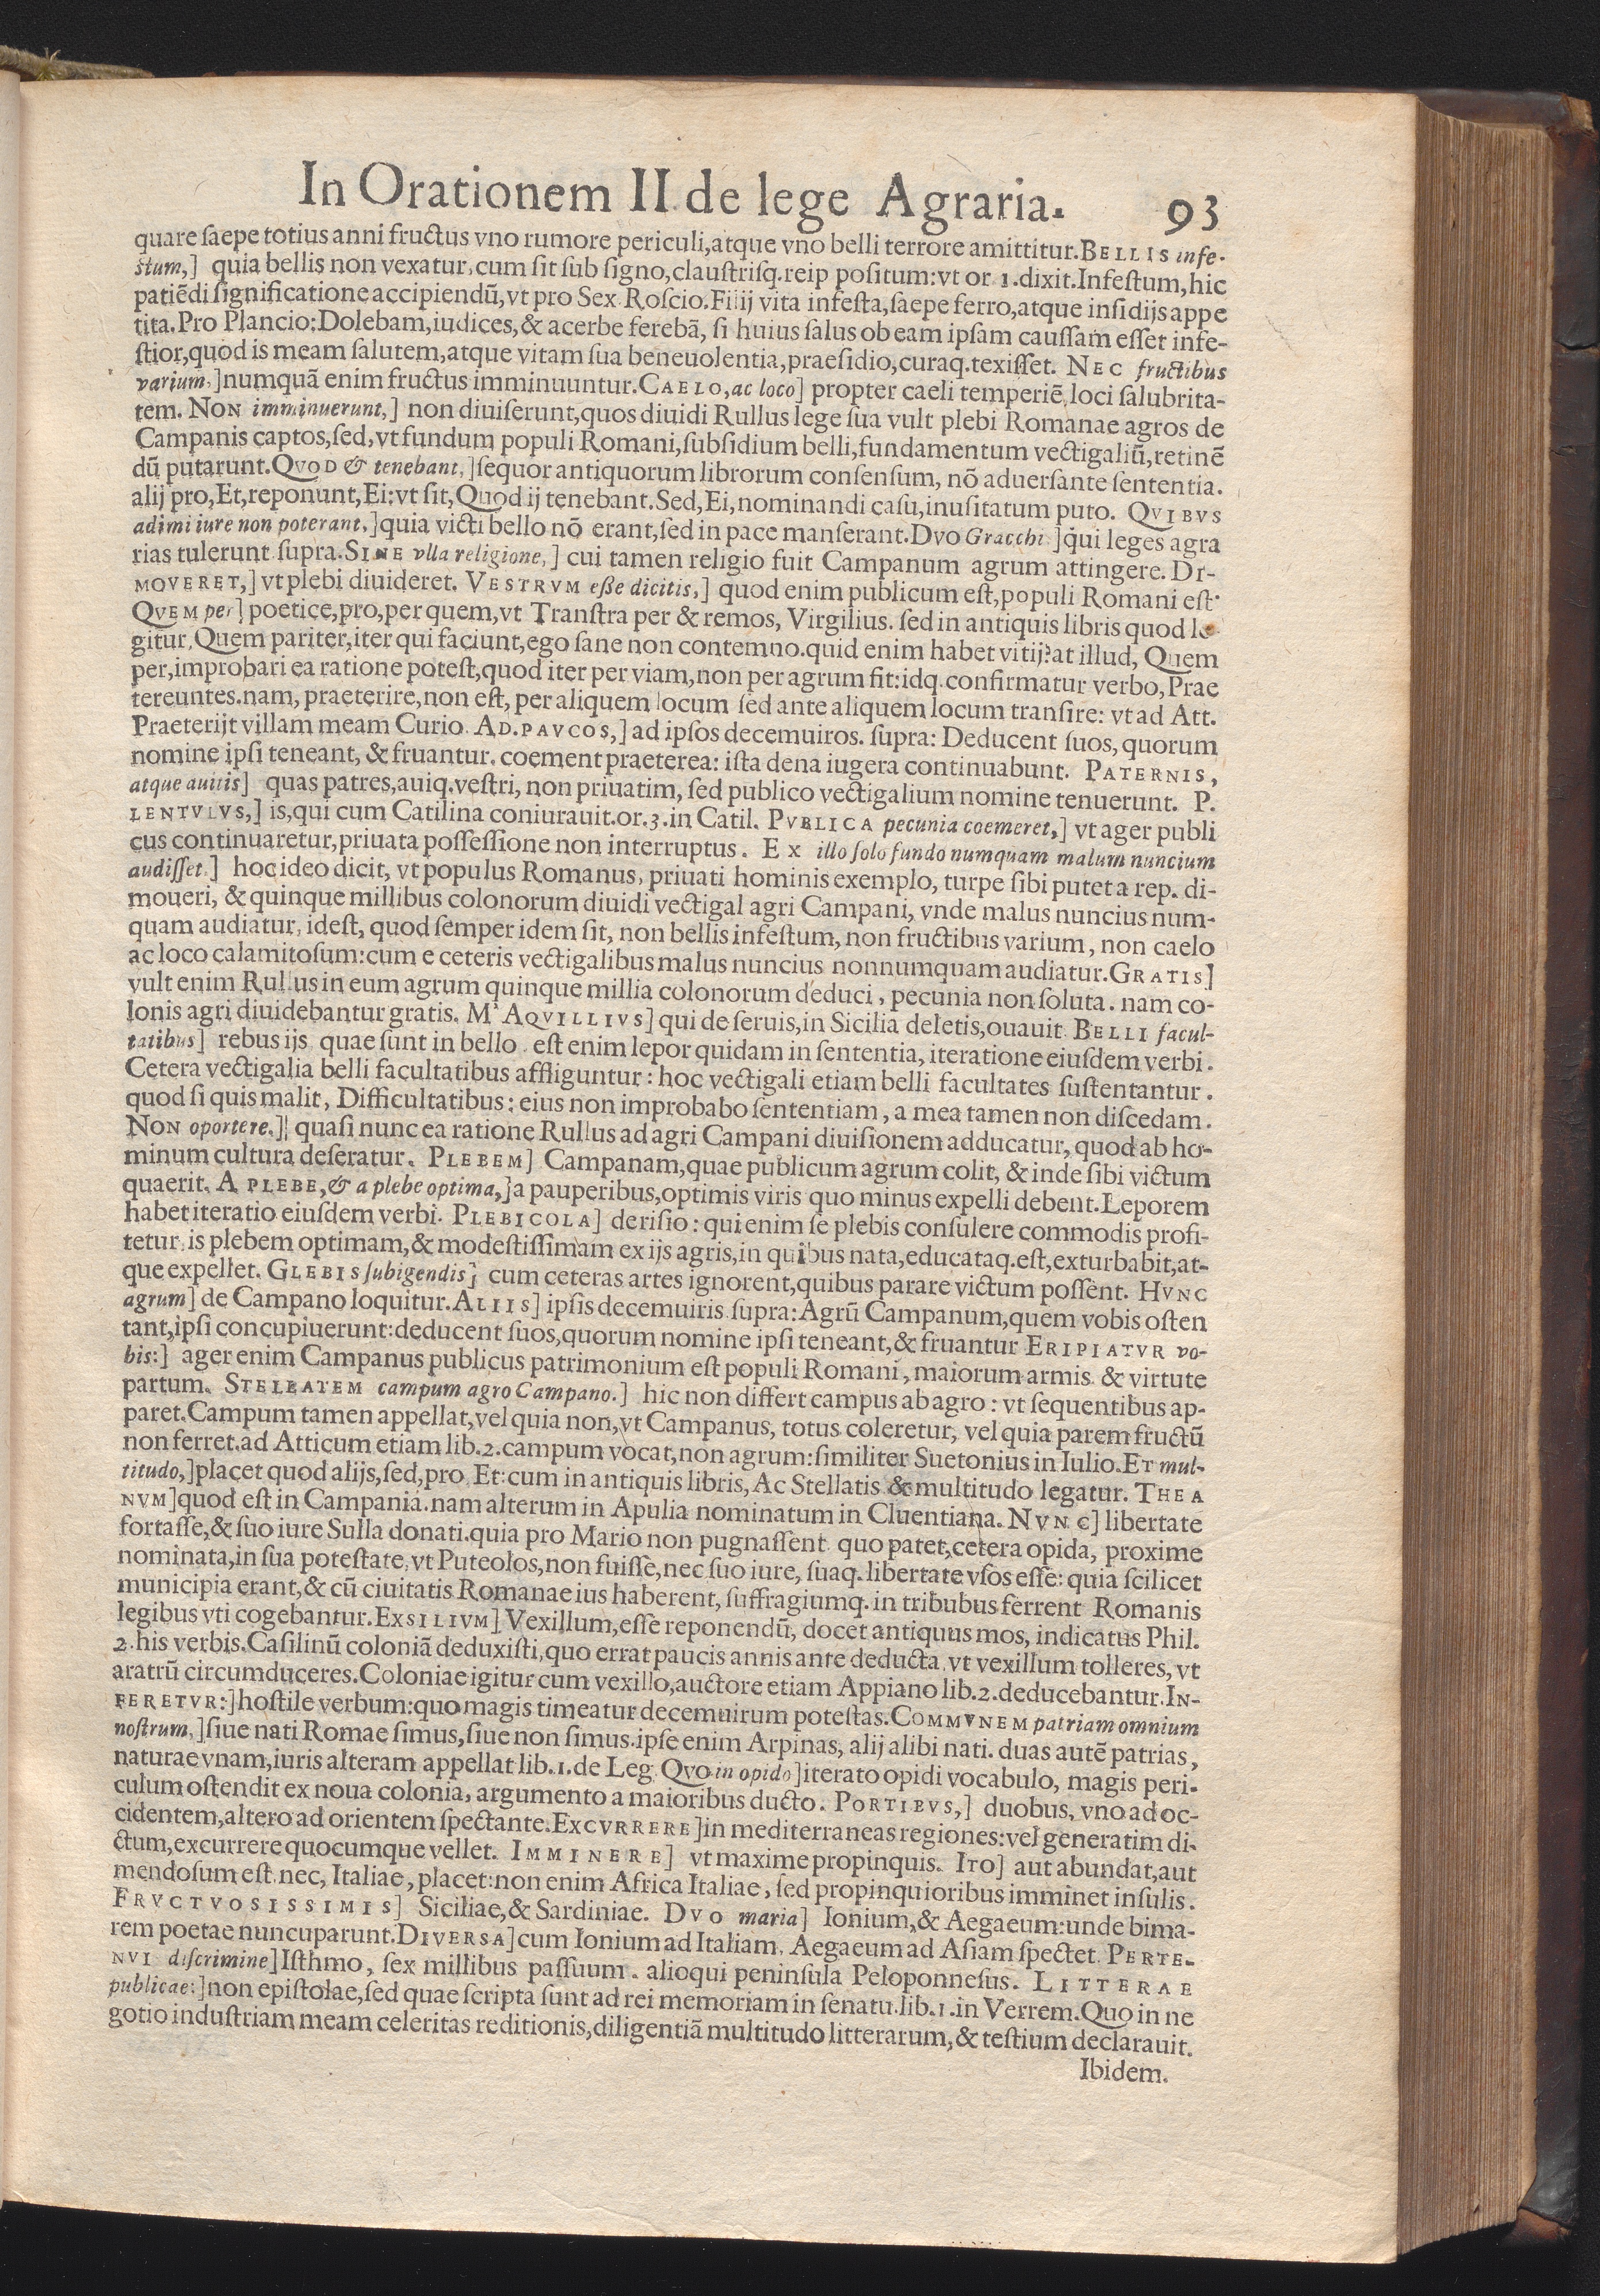 In Orationem II de lege Agraria. 93
quare ſaepe totius anni fructus vno rumore periculi,atque vno belli terrore amittitur.BELLIS infe-
ſtum,] quia bellis non vexatur,cum ſit ſub ſigno,clauſtriſq.reip poſitum:vt or 1.dixit.Infeſtum,hic
patiēdi ſignificatione accipiendū,vt pro Sex Roſcio.Filij vita infeſta,ſaepe ferro,atque inſidijs appe
tita.Pro Plancio:Dolebam,iudices,& acerbe ferebā, ſi huius ſalus ob eam ipſam cauſſam eſſet infe-
ſtior,quod is meam ſalutem,atque vitam ſua beneuolentia,praeſidio,curaq.texiſſet. NEC fructibus
varium,]numquā enim fructus imminuuntur.CAELO,ac loco] propter caeli temperiē,loci ſalubrita-
tem. NON imminuerunt,] non diuiſerunt,quos diuidi Rullus lege ſua vult plebi Romanae agros de
Campanis captos,ſed,vt fundum populi Romani,ſubſidium belli,fundamentum vectigaliū,retinē
dū putarunt.QVOD & tenebant,]ſequor antiquorum librorum conſenſum, nō aduerſante ſententia.
alij pro,Et,reponunt,Ei:vt ſit,Quod ij tenebant.Sed,Ei,nominandi caſu,inuſitatum puto. QVIBVS
adimi iure non poterant,]quia victi bello nō erant,ſed in pace manſerant.DVO Gracchi]qui leges agra
rias tulerunt ſupra.SINE vlla religione,] cui tamen religio fuit Campanum agrum attingere. DI-
MOVERET,] vt plebi diuideret. VESTRVM eße dicitis,] quod enim publicum eſt,populi Romani eſt·
QVEM per] poetice,pro,per quem,vt Tranſtra per & remos, Virgilius. ſed in antiquis libris quod le
gitur,Quem pariter,iter qui faciunt,ego ſane non contemno.quid enim habet vitij?at illud, Quem
per,improbari ea ratione poteſt,quod iter per viam,non per agrum fit:idq.confirmatur verbo,Prae
tereuntes.nam, praeterire,non eſt, per aliquem locum ſed ante aliquem locum tranſire: vt ad Att.
Praeterijt villam meam Curio. AD.PAVCOS,] ad ipſos decemuiros. ſupra: Deducent ſuos, quorum
nomine ipſi teneant, & fruantur. coement praeterea: iſta dena iugera continuabunt. PATERNIS,
atque auitis] quas patres,auiq.veſtri, non priuatim, ſed publico vectigalium nomine tenuerunt. P.
LENTVLVS,] is,qui cum Catilina coniurauit.or.3.in Catil. PVBLICA pecunia coemeret,] vt ager publi
cus continuaretur,priuata poſſeſſione non interruptus. EX illo ſolo fundo numquam malum nuncium
audiſſet.] hoc ideo dicit, vt populus Romanus, priuati hominis exemplo, turpe ſibi putet a rep. di-
moueri, & quinque millibus colonorum diuidi vectigal agri Campani, vnde malus nuncius num-
quam audiatur, ideſt, quod ſemper idem ſit, non bellis infeſtum, non fructibus varium, non caelo
ac loco calamitoſum:cum e ceteris vectigalibus malus nuncius nonnumquam audiatur.GRATIS]
vult enim Rullus in eum agrum quinque millia colonorum deduci, pecunia non ſoluta. nam co-
lonis agri diuidebantur gratis. M' AQVILLIVS] qui de ſeruis,in Sicilia deletis,ouauit. BELLI facul-
tatibus] rebus ijs, quae ſunt in bello. eſt enim lepor quidam in ſententia, iteratione eiuſdem verbi.
Cetera vectigalia belli facultatibus affliguntur: hoc vectigali etiam belli facultates ſuſtentantur.
quod ſi quis malit, Difficultatibus: eius non improbabo ſententiam, a mea tamen non diſcedam.
NON oportere.] quaſi nunc ea ratione Rullus ad agri Campani diuiſionem adducatur, quod ab ho-
minum cultura deſeratur. PLEBEM] Campanam,quae publicum agrum colit, & inde ſibi victum
quaerit. A PLEBE,& a plebe optima,]a pauperibus,optimis viris quo minus expelli debent.Leporem
habet iteratio eiuſdem verbi. PLEBICOLA] deriſio: qui enim ſe plebis conſulere commodis profi-
tetur,is plebem optimam,& modeſtiſſimam ex ijs agris,in quibus nata,educataq.eſt,exturbabit,at-
que expellet. GLEBIS ſubigendis] cum ceteras artes ignorent,quibus parare victum poſſent. HVNC
agrum] de Campano loquitur.ALIIS] ipſis decemuiris ſupra:Agrū Campanum,quem vobis oſten
tant,ipſi concupiuerunt:deducent ſuos,quorum nomine ipſi teneant,& fruantur ERIPIATVR vo-
bis:] ager enim Campanus publicus patrimonium eſt populi Romani, maiorum armis & virtute
partum. STELLATEM campum agro Campano.] hic non differt campus ab agro: vt ſequentibus ap-
paret.Campum tamen appellat,vel quia non,vt Campanus, totus coleretur, vel quia parem fructū
non ferret.ad Atticum etiam lib.2.campum vocat,non agrum:ſimiliter Suetonius in Iulio.ET mul-
titudo,]placet quod alijs,ſed,pro Et:cum in antiquis libris, Ac Stellatis & multitudo legatur. THEA
NVM]quod eſt in Campania.nam alterum in Apulia nominatum in Cluentiana. NVNC] libertate
fortaſſe,& ſuo iure Sulla donati.quia pro Mario non pugnaſſent. quo patet,cetera opida, proxime
nominata,in ſua poteſtate,vt Puteolos,non fuiſſe,nec ſuo iure, ſuaq.libertate vſos eſſe: quia ſcilicet
municipia erant,& cū ciuitatis Romanae ius haberent, ſuffragiumq.in tribubus ferrent Romanis
legibus vti cogebantur.EXSILIVM] Vexillum,eſſe reponendū, docet antiquus mos, indicatus Phil.
2.his verbis.Caſilinū coloniā deduxiſti,quo errat paucis annis ante deducta,vt vexillum tolleres, vt
aratrū circumduceres.Coloniae igitur cum vexillo,auctore etiam Appiano lib.2.deducebantur.IN-
FERETVR:]hoſtile verbum:quo magis timeatur decemuirum poteſtas.COMMVNEM patriam omnium
noſtrum,]ſiue nati Romae ſimus,ſiue non ſimus.ipſe enim Arpinas, alij alibi nati. duas autē patrias,
naturae vnam,iuris alteram appellat lib.1.de Leg. QVO in opido]iterato opidi vocabulo, magis peri-
culum oſtendit ex noua colonia, argumento a maioribus ducto. PORTIBVS,] duobus, vno ad oc-
cidentem,altero ad orientem ſpectante.EXCVRRERE]in mediterraneas regiones:vel generatim di-
ctum,excurrere quocumque vellet. IMMINERE] vt maxime propinquis. ITO] aut abundat,aut
mendoſum eſt.nec, Italiae, placet:non enim Africa Italiae, ſed propinquioribus imminet inſulis.
FRVCTVOSISSIMIS] Siciliae,& Sardiniae. DVO maria] Ionium,& Aegaeum:unde bima-
rem poetae nuncuparunt.DIVERSA]cum Ionium ad Italiam, Aegaeum ad Aſiam ſpectet. PERTE-
NVI diſcrimine]Iſthmo, ſex millibus paſſuum. alioqui peninſula Peloponneſus. LITTERAE
publicae:]non epiſtolae,ſed quae ſcripta ſunt ad rei memoriam in ſenatu.lib.1.in Verrem.Quo in ne
gotio induſtriam meam celeritas reditionis,diligentiā multitudo litterarum,& teſtium declarauit.
Ibidem.